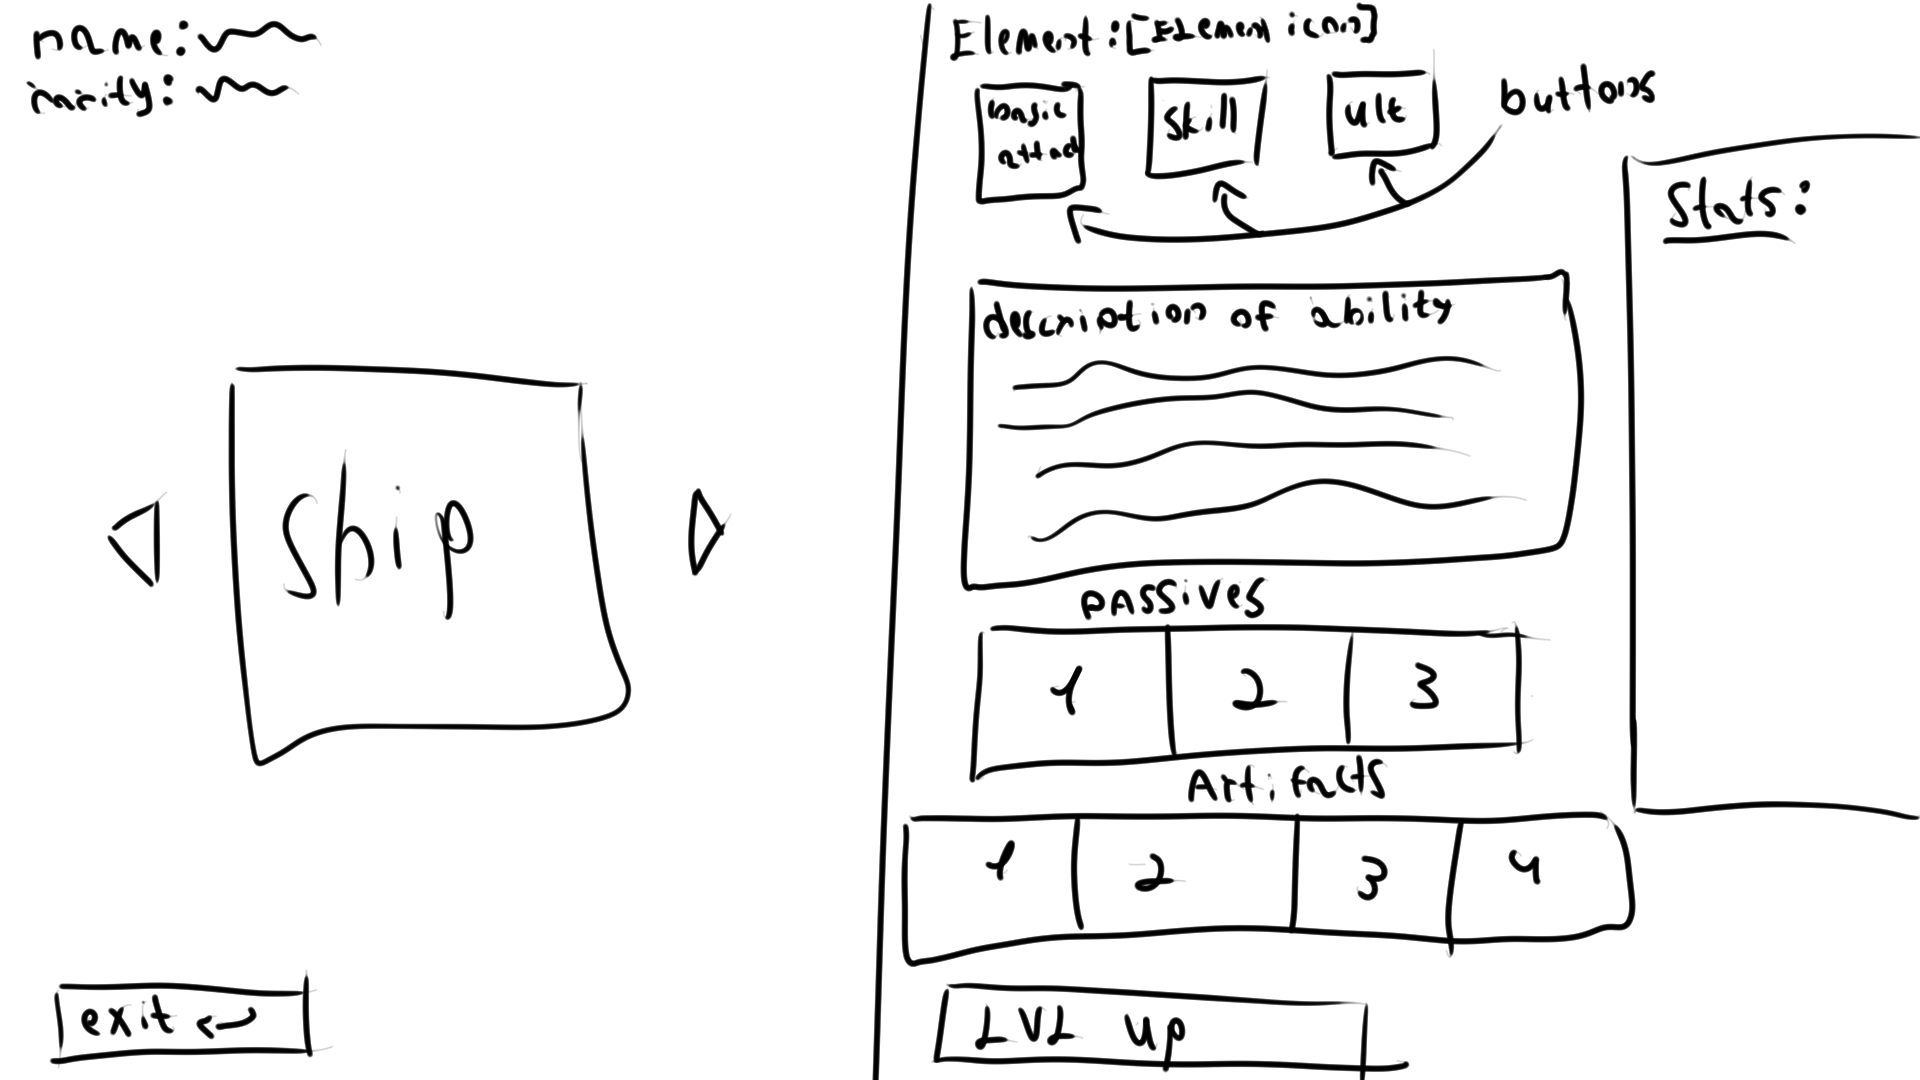 name:
rarity:
Element:[Element icon]
basic
attack
skill
ult
buttons
Stats:
description of ability
passives
1 2 3
Artifacts
1 2 3 4
LVL up
Ship
exit